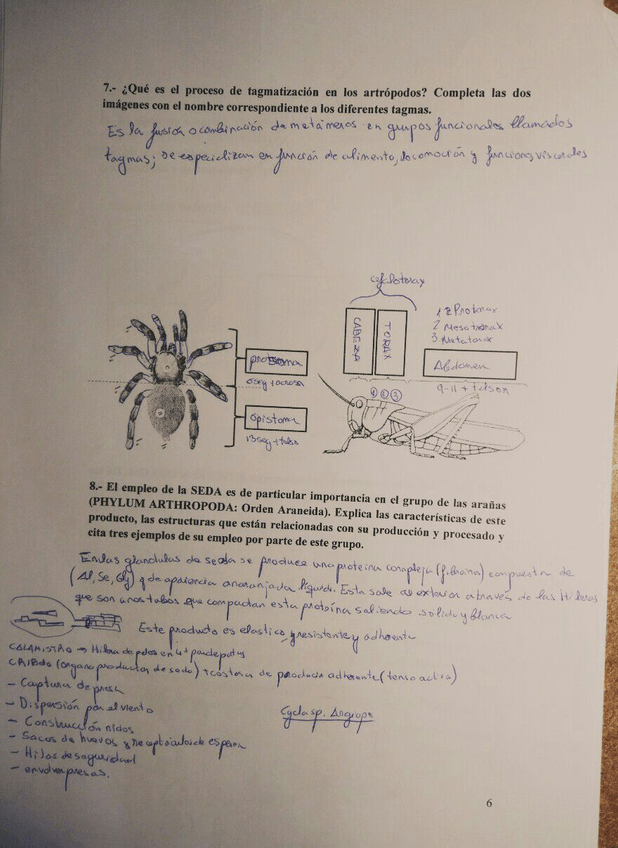 7.- ¿Qué es el proceso de tagmatización en los artrópodos? Completa las dos
imágenes con el nombre correspondiente a los diferentes tagmas.
Es la fusión o combinación de metámeros en grupos funcionales llamados
tagmas; se especializan en función de alimento, locomoción y funciones viscerales
cefalotorax
CABEZA
TORAX
1 Protorax
2 Mesotorax
3 Metatorax
Abdomen
9-11 + telson
1 2 3
prosoma
6seg + acron
opistoma
13seg + telso
8.- El empleo de la SEDA es de particular importancia en el grupo de las arañas
(PHYLUM ARTHROPODA: Orden Araneida). Explica las características de este
producto, las estructuras que están relacionadas con su producción y procesado y
cita tres ejemplos de su empleo por parte de este grupo.
En las glandulas de seda se produce una proteina compleja (fibroina) compuesta de
(Al, Se, Gly) y de apariencia anaranjada liquida. Esta sale al exterior a través de las hileras
que son unos tubos que compactan esta proteína saliendo solida y blanca
Este producto es elastico, resistente y adherente
CALAMISTRO → Hilera de pelos en 4º par de patas
CRIBELO (organo productor de seda) de producir adherente (tenso activa)
- Captura de presa
- Dispersión por el viento
- Construcción nidos
- Sacos de huevos y receptáculo de esperma
- Hilos de seguridad
- envolver presas.
Cyclosp. Argiope
6